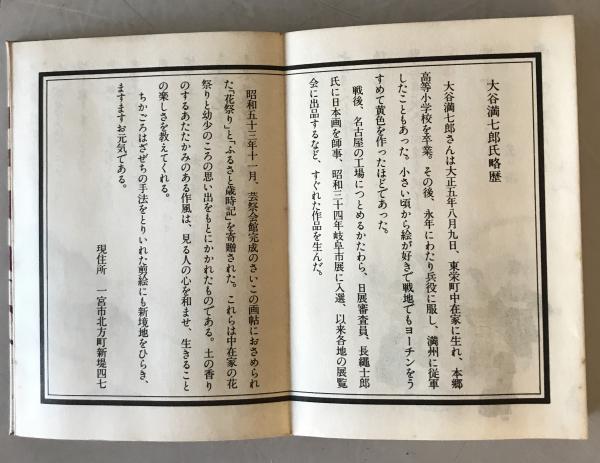 大谷満七郎氏略歴
大谷満七郎さんは大正五年八月九日、東栄町中在家に生れ、本郷
高等小学校を卒業。その後、永年にわたり兵役に服し、満州に従軍
したこともあった。小さい頃から絵が好きで戦地でもヨーチンをう
すめて黄色を作ったほどであった。
戦後、名古屋の工場につとめるかたわら、日展審査員、長縄士郎
氏に日本画を師事、昭和三十四年岐阜市展に入選、以来各地の展覧
会に出品するなど、すぐれた作品を生んだ。
昭和五十三年十一月、芸祭会館完成のさいこの画帖におさめられ
た「花祭り」と「ふるさと歳時記」を寄贈された。これらは中在家の花
祭りと幼少のころの思い出をもとにかかれたものである。土の香り
のするあたたかみのある作風は、見る人の心を和ませ、生きること
の楽しさを教えてくれる。
ちかごろはざぜちの手法をとりいれた剪絵にも新境地をひらき、
ますますお元気である。
現住所 一宮市北方町新堤四七